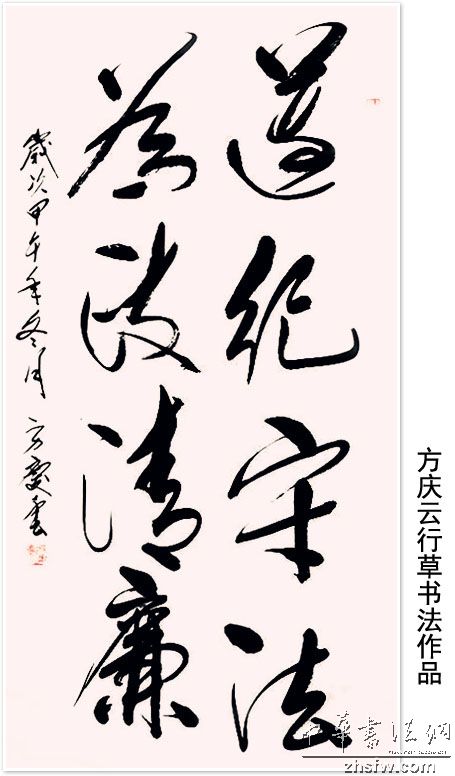 遵纪守法
为政清廉
歲次甲午年冬月 方慶雲
方庆云行草书法作品
中華書法網
zhsfw.com